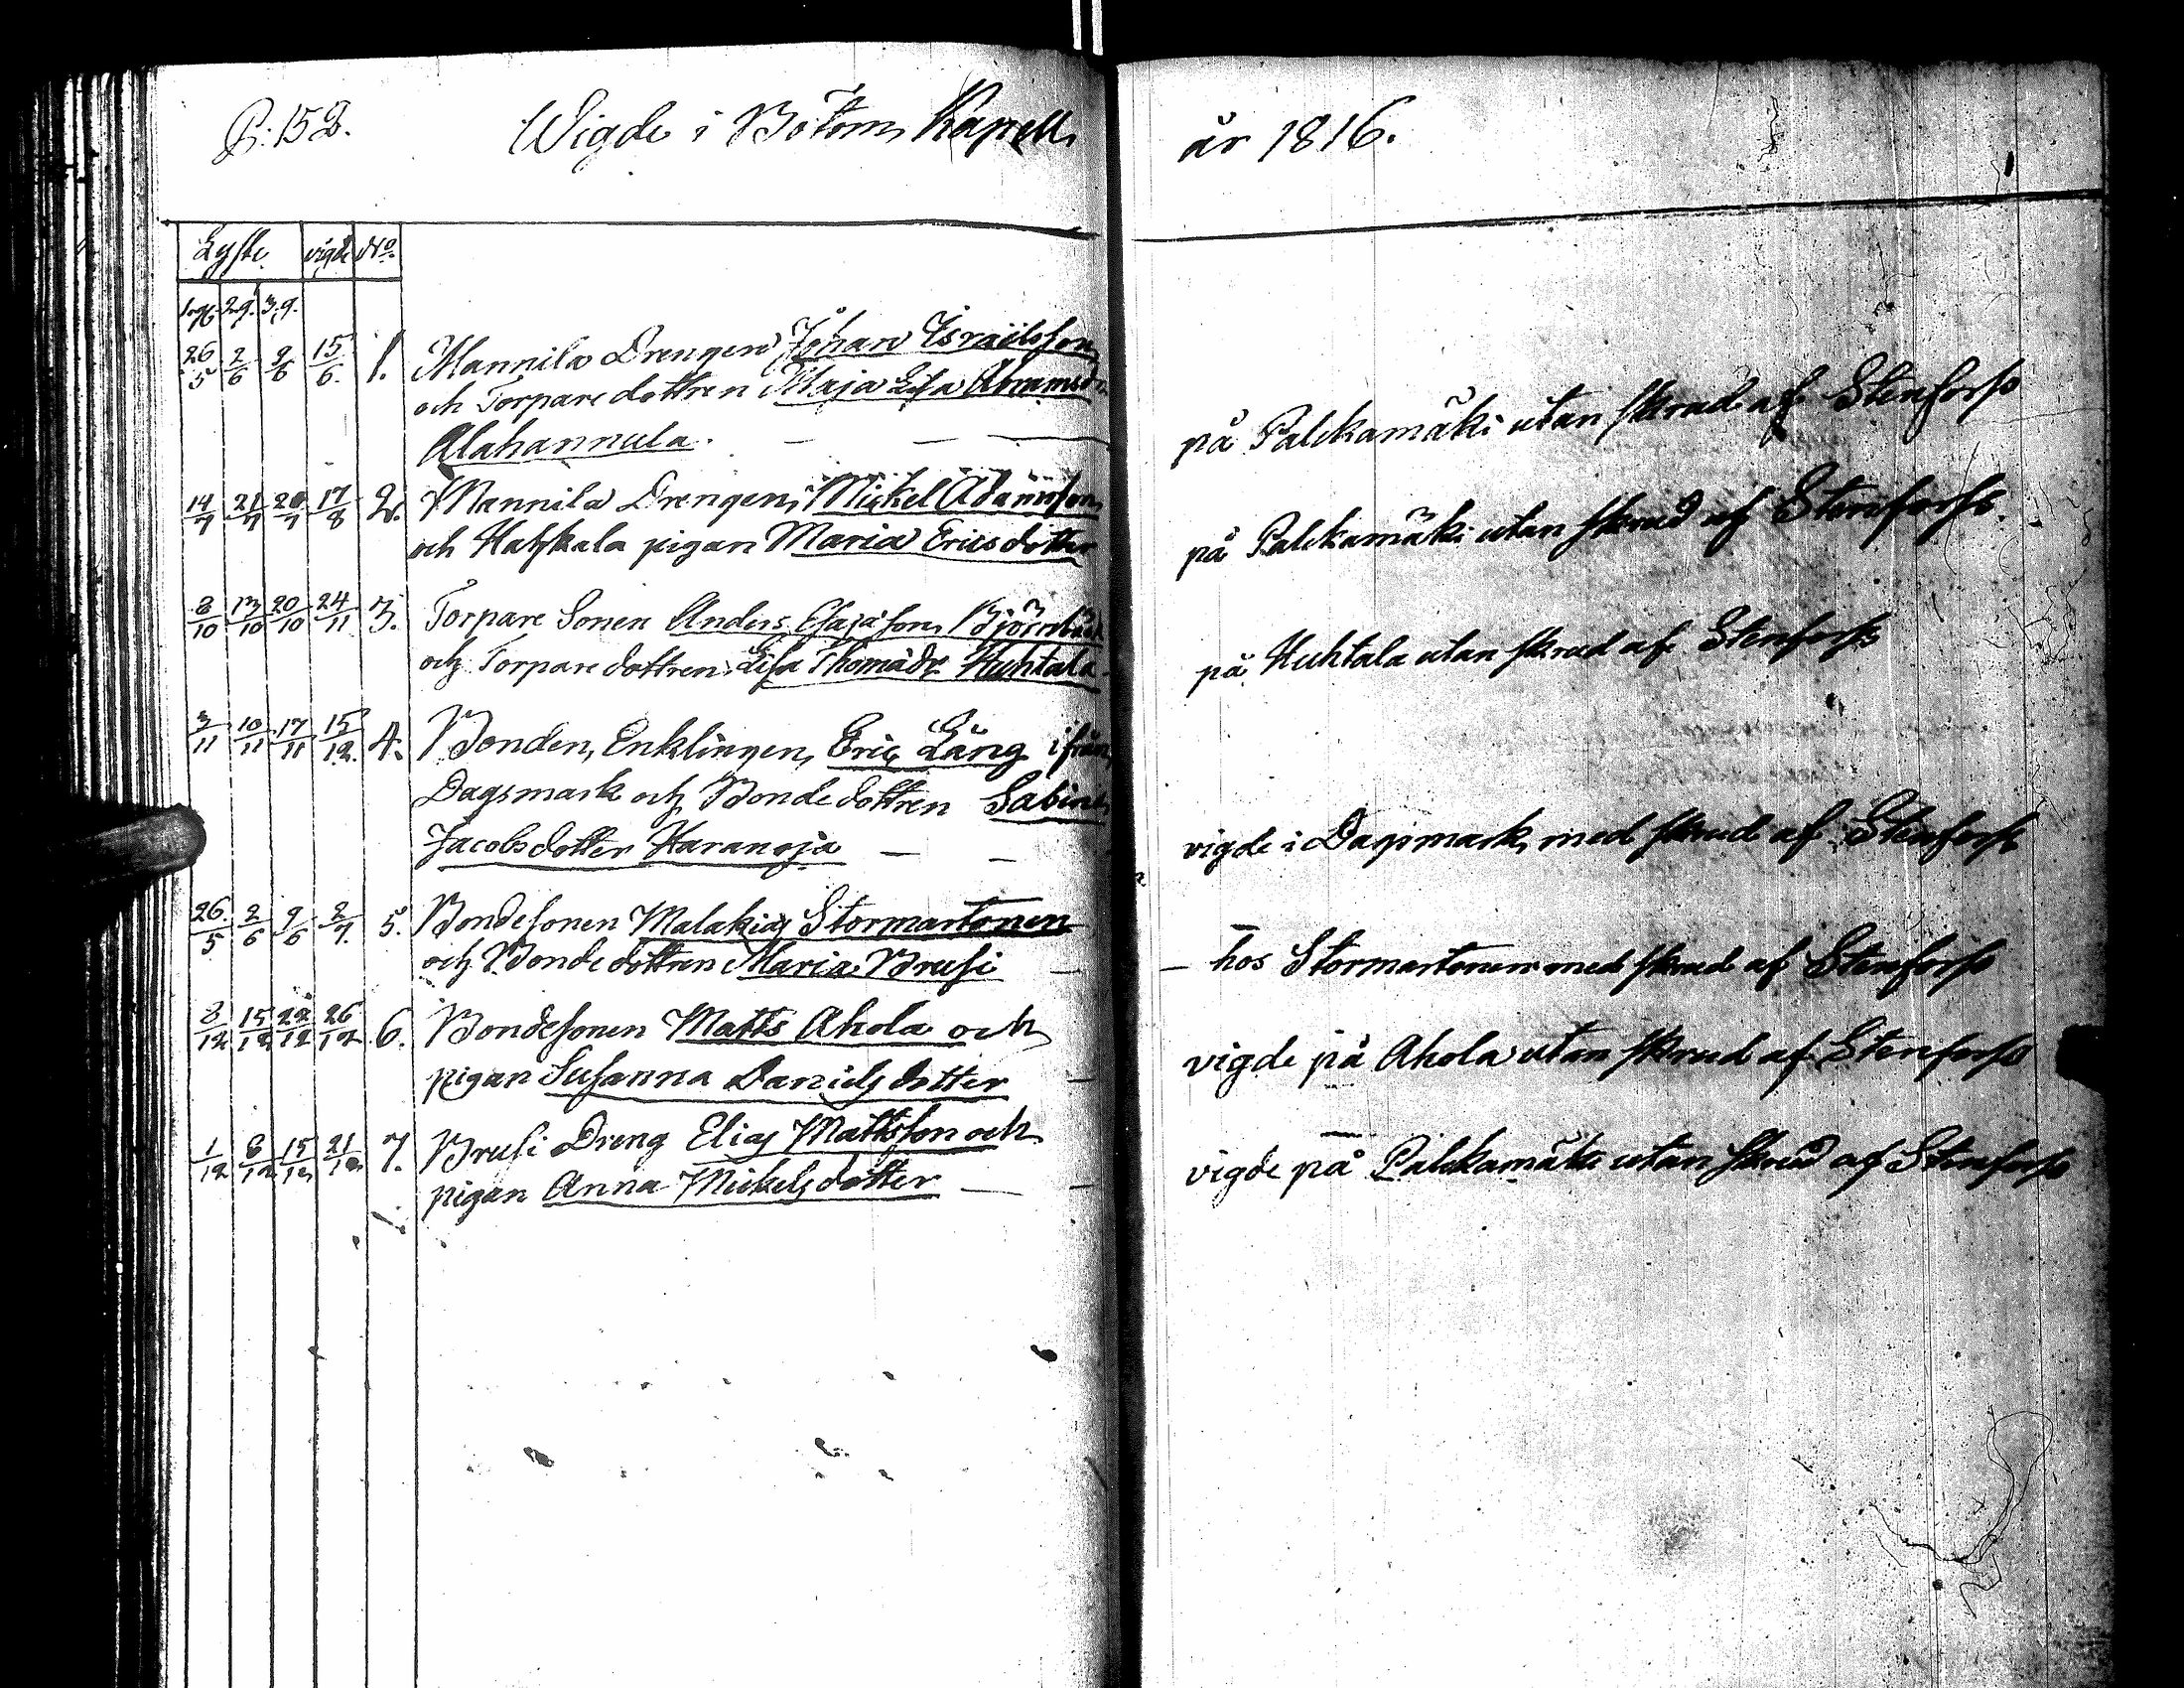 P. 152. Wigde i Bötom Kapell år 1816.
Lyste vigde No.
1 g. 2 g. 3. g.
26/5 2/6 9/6 15/6. 1. Mannila Drengen Johan Israëlsson
och Torpare dottren Maja Lisa Abramsdr
Alahannula. — — — på Palckamäki utan skrud af Stenforss
14/7 21/7 28/7 17/8 2. Mannila Drengen Mickel Adamsson
och Hatskala pigan Maria Ericsdotter på Palckamäki utan skrud af Stenforss.
8/10 13/10 20/10 24/11 3. Torpare Sonen Anders Esajason Björnbäck
och Torpare dottren Lisa Thomädr Huhtala på Huhtala utan skrud af Stenforss
3/11 10/11 17/11 15/12. 4. Bonden, Enklingen, Eric Lång ifrån
Dagsmark och Bonde dottren Sabina
Jacobsdotter Karanoja — — vigde i Dagsmark med skrud af Stenforss
26./5 2/6 9/6 2/7. 5. Bondesonen Malakias Stormartonen
och Bonde dottren Maria Brusi — — hos Stormartonen med skrud af Stenforss
8/12 15/12 22/12 26/12 6. Bondesonen Matts Ahola och
pigan Susanna Danielsdotter — vigde på Ahola utan skrud af Stenforss
1/12 8/12 15/12 21/12 7. Brusi Dreng Elias Mattsson och
pigan Anna Mickelsdotter — — vigde på Palckamäki utan skrud af Stenforss